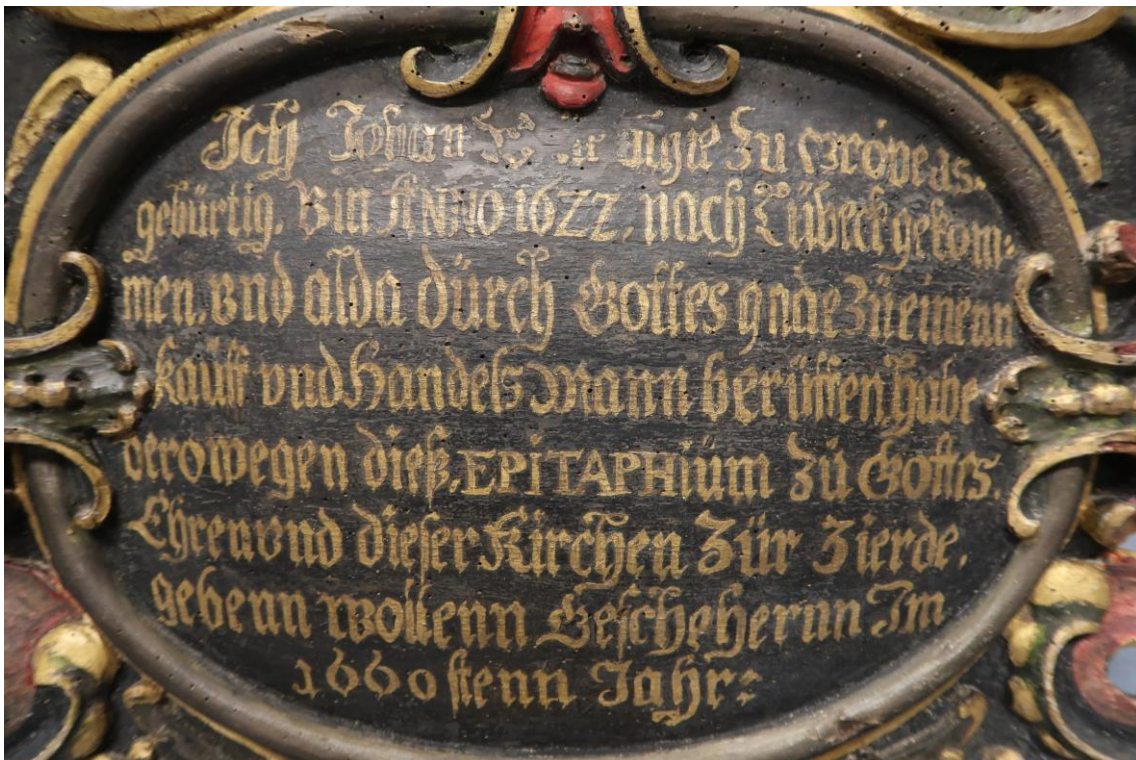 Ich Johan zu
gebürtig. Bin ANNO 1622. nach Lübeck gekom=
men. vnd alda dürch Gottes gnade zü einenn
Kauff vnd Handels Mann berüffen habe
derowegen dieß. EPITAPHIüm zü Gottes.
Ehren vnd dieser Kirchen Zür Zierde.
gebenn wollenn Geschehernn Im
1660 stenn Jahr: